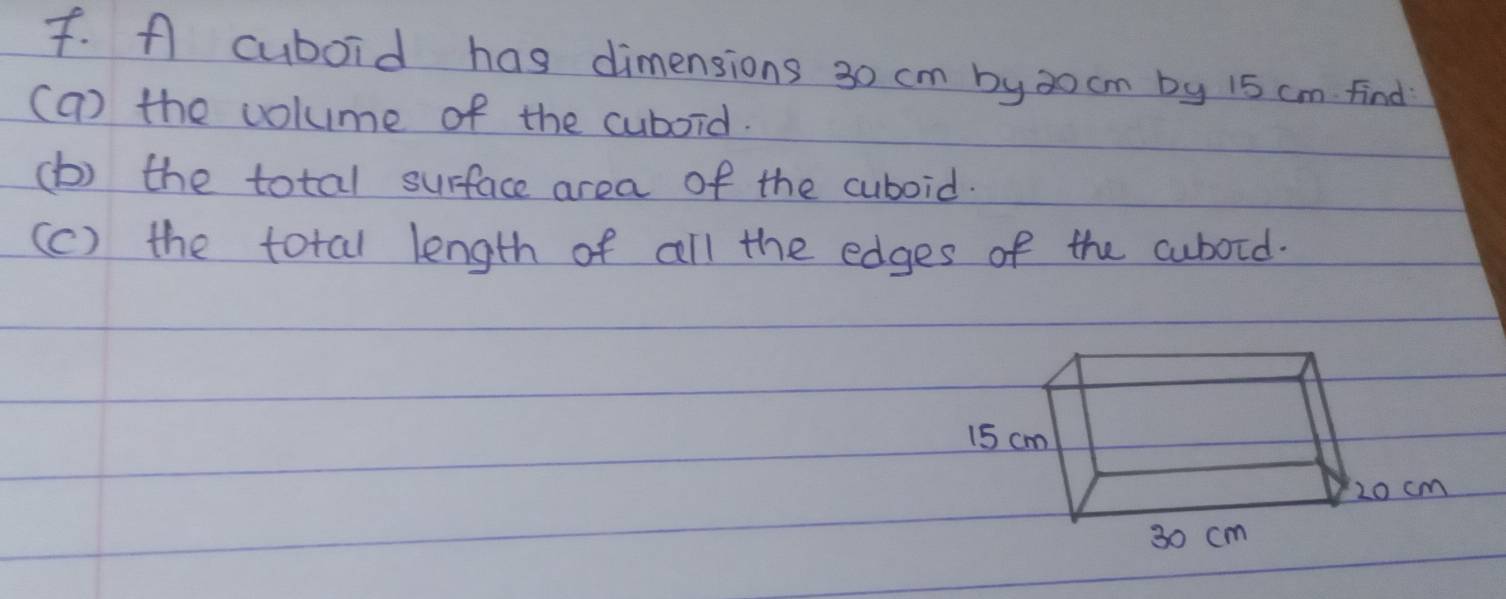 7. A cuboid has dimensions 30 cm by 20 cm by 15 cm. find:
(a) the volume of the cuboid.
(b) the total surface area of the cuboid.
(c) the total length of all the edges of the cuboid.
15 cm
20 cm
30 cm